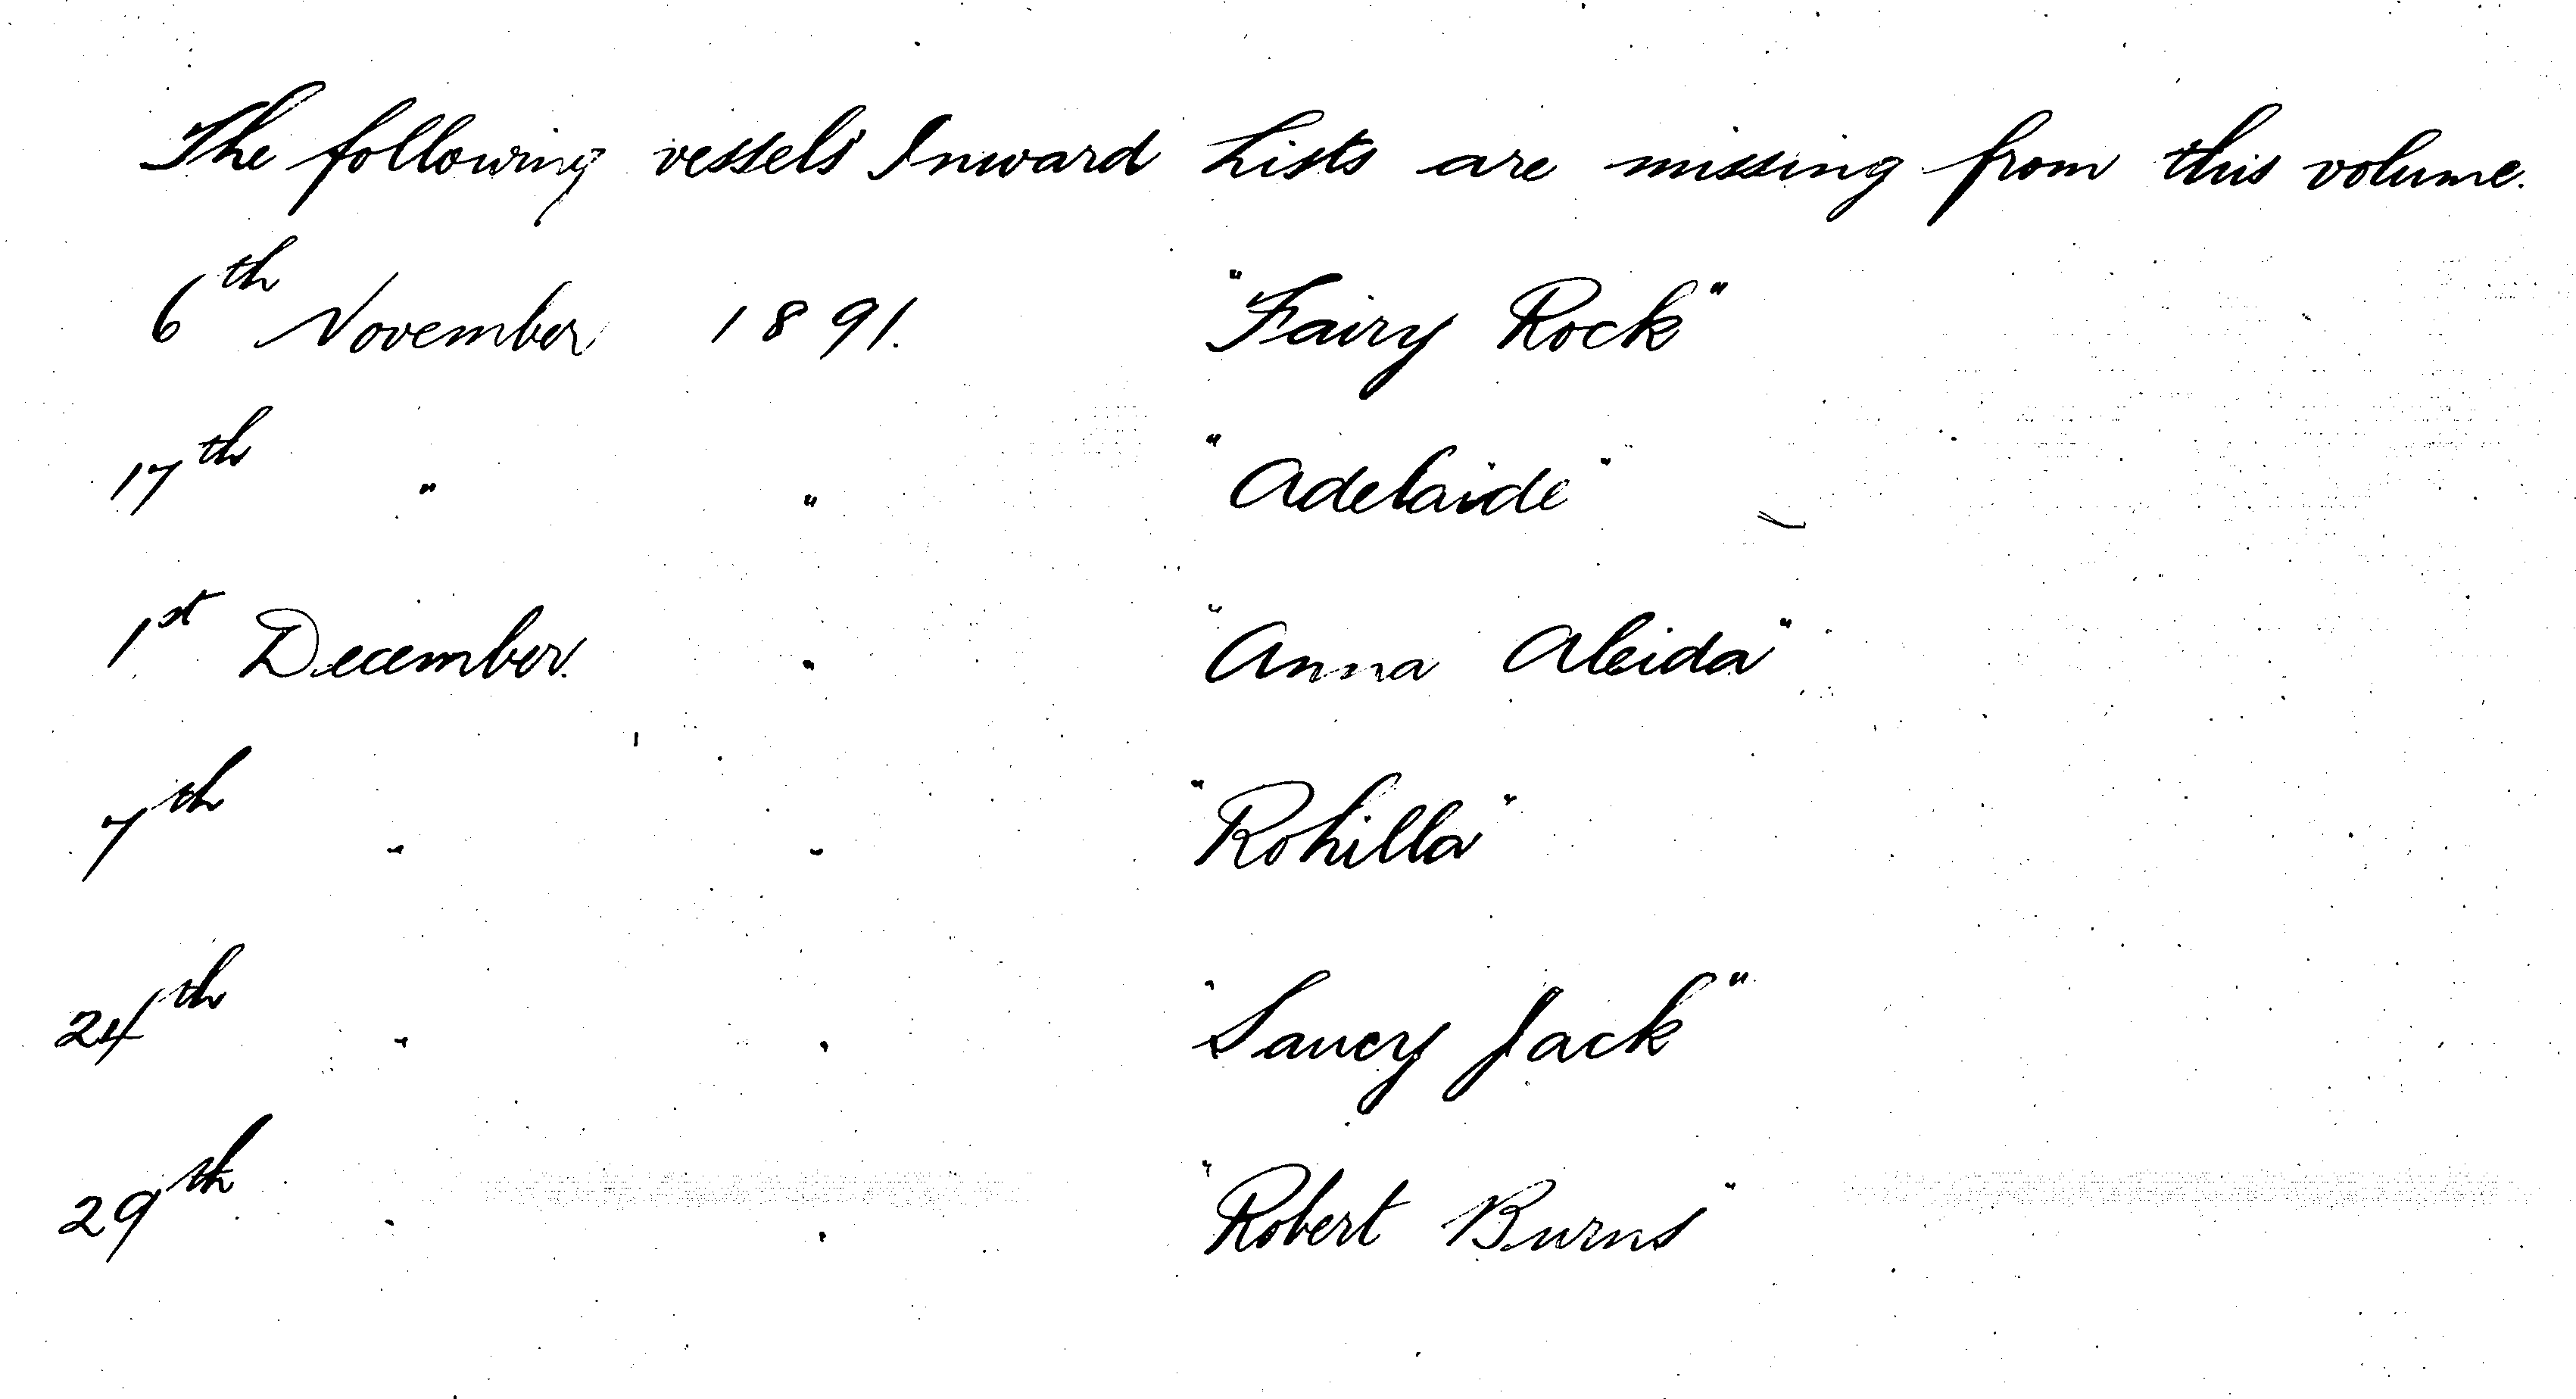 The following vessels' Inward Lists are missing from this volume.
6th November 1891. "Fairy Rock"
17th " " "Adelaide"
1st December. " "Anna Aleida"
7th " " "Rohilla"
24th " " "Saucy Jack"
29th " " "Robert Burns"